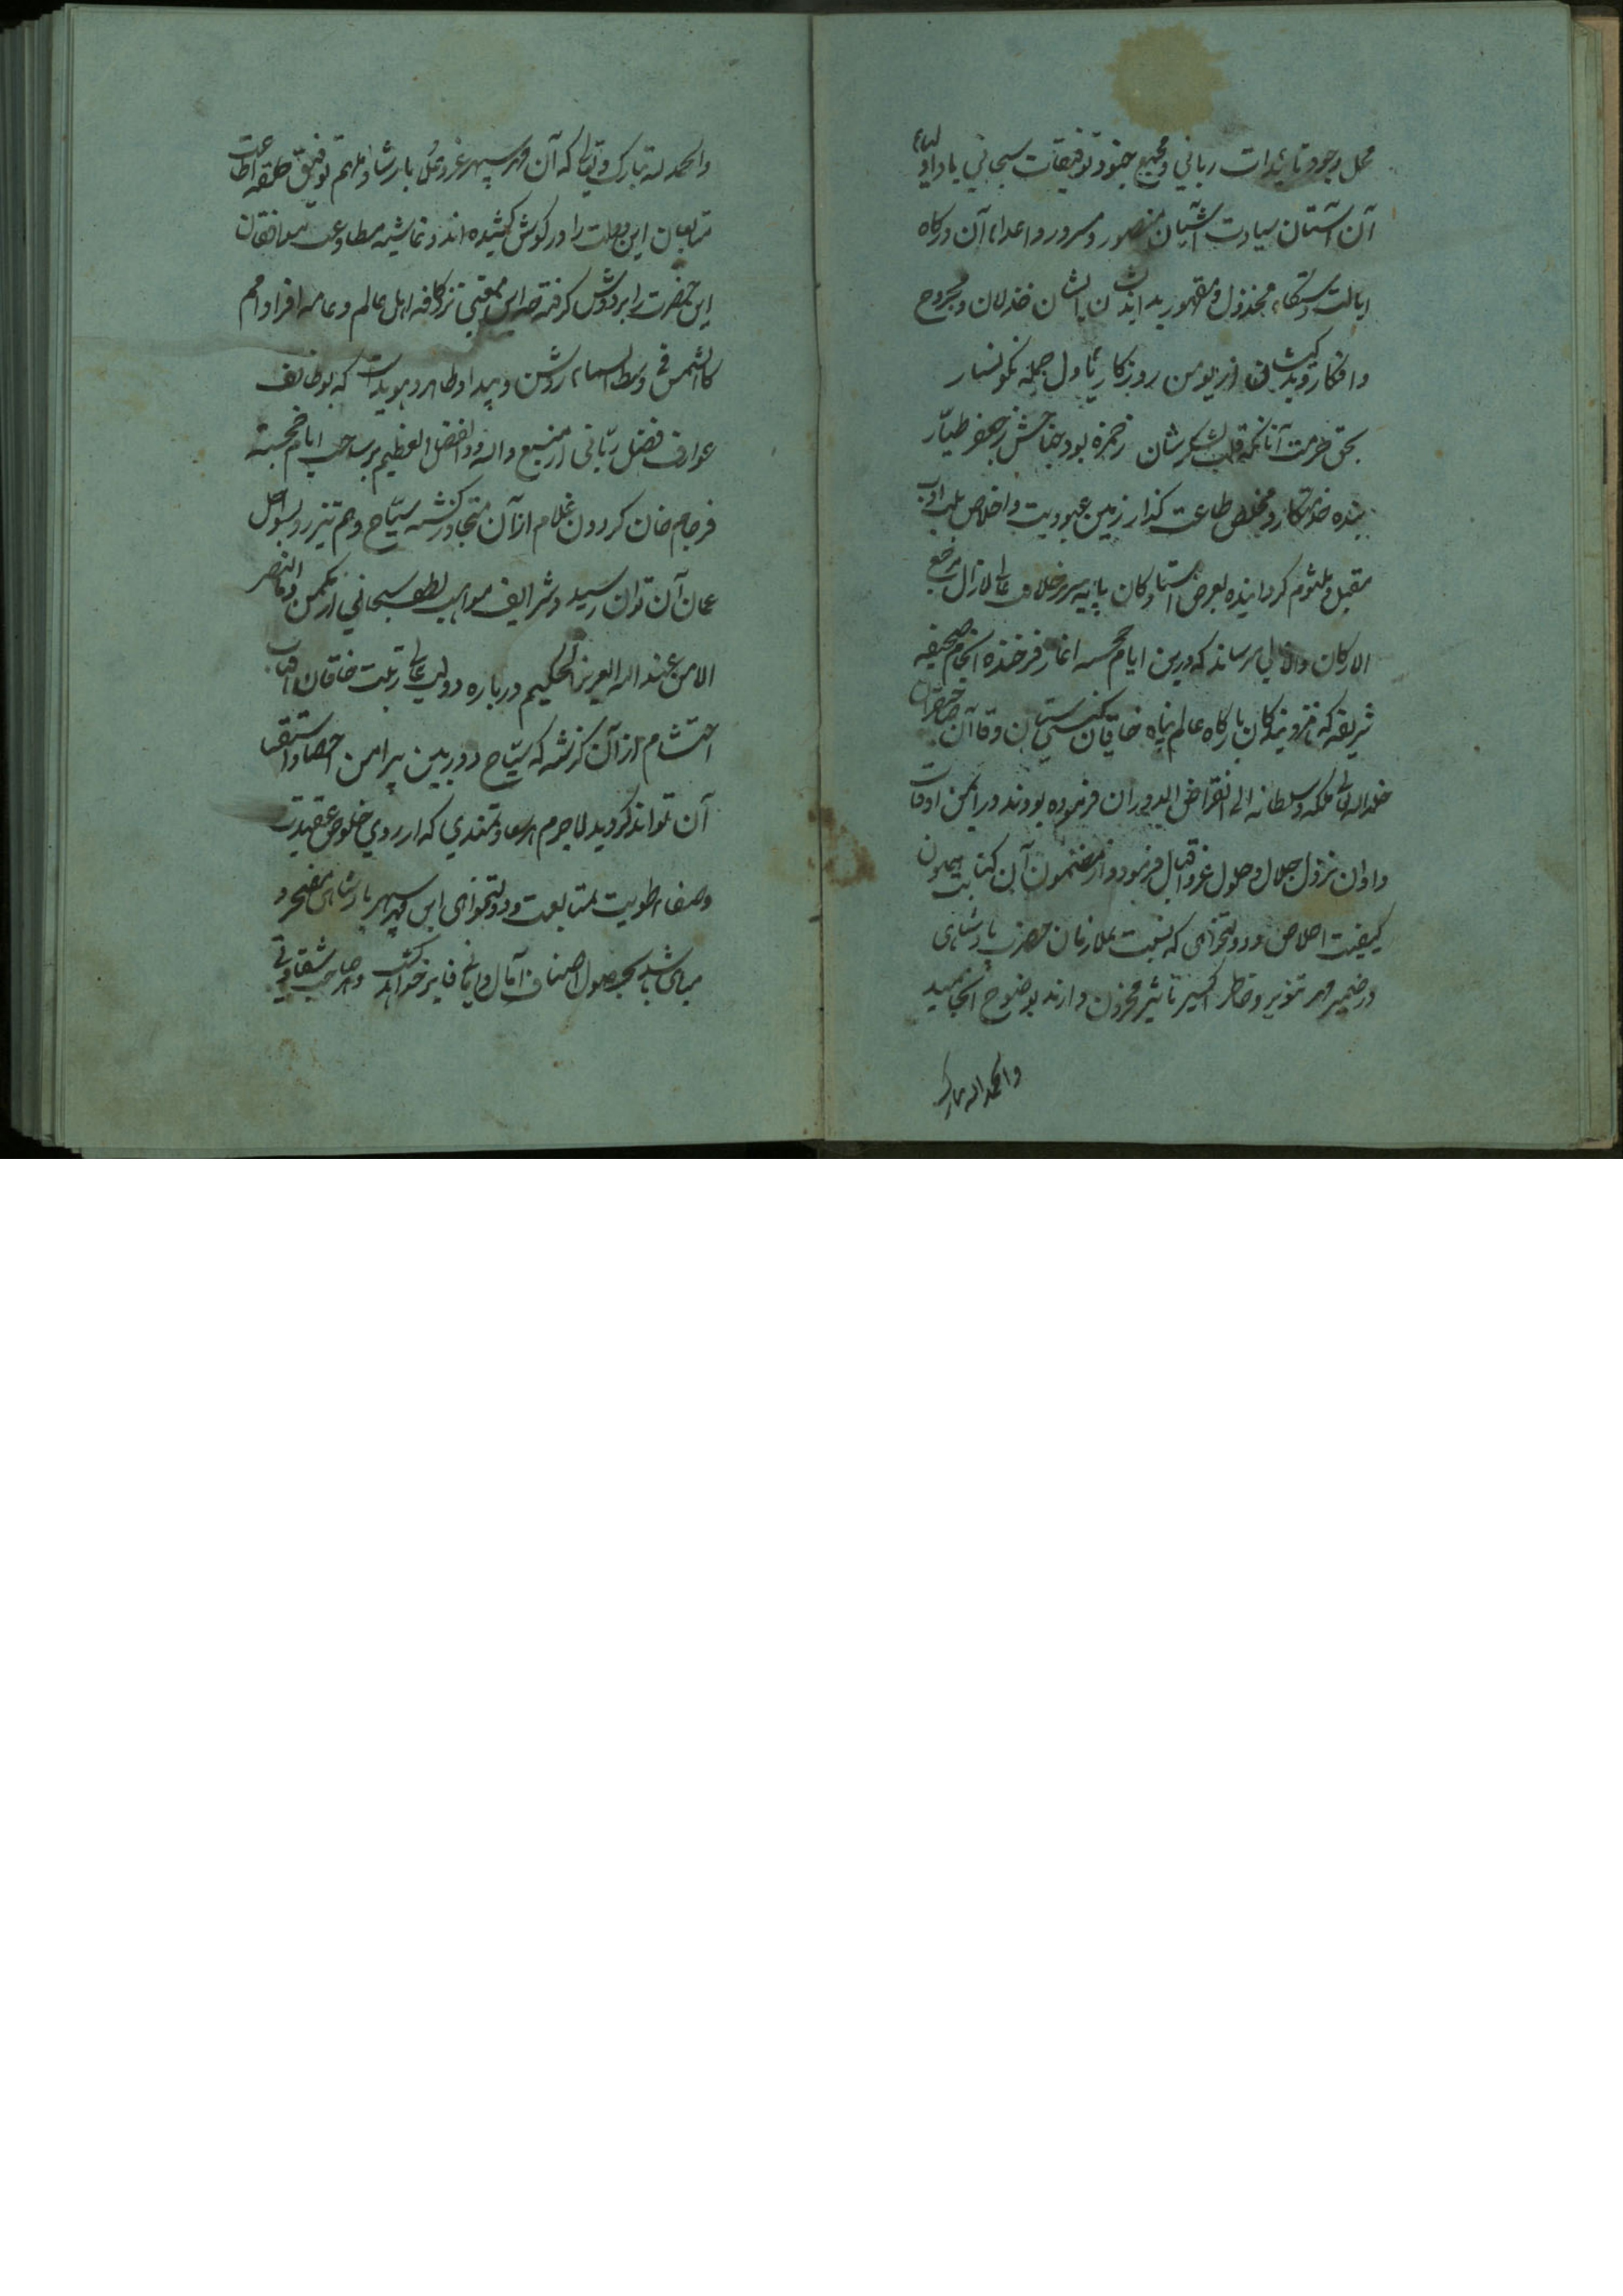 محل وجود تائیدات ربانی و مجمع جنود توفیقات سبحانی باد اولیاء
آن آستان سیادت آشیان منصور و مسرور و اعداء آن درگاه
ایالت دستگاه مخذول و مقهور بد اندیشان ایشان خذلان و مجروح
وافکار و بدکیشان ازیومن روزگار تا ول جمله نکونسار
بحق حرمت آنانکه قلب لشکرشان ز حمزه بود جناحش ز جعفر طیّار
بنده خدمتکار و مخلص طاعت گذار زمین عبودیت و اخلاص بلب ادب
مقبل و ملثوم گردانیده بعرض استادگان پایه سریر خلافت عالی لازال مرتفع
الارکان والاعالی میرساند که درین ایام خجسته اغاز فرخنده انجام صحیفه
شریفه که نزد بندکان بارگاه عالم پناه خاقان گیتی ستان و قاآن صاحبقران
خلد الله تعالی ملکه و سلطانه الی انقراض الدوران فرموده بودند در ایمن اوقات
واوان نزول جلال و حلول عز و اقبال فرمود و از مضمون آن کتابت همایون
کیفیت اخلاص و دولتخواهی که نسبت بملازمان حضرت پادشاهی
در ضمیر مهر تنویر و خاطر اکسیر تاثیر مخزون دارند بوضوح انجامید
والحمد لله تبارک
والحمد لله تبارک و تعالی که آن مهر سپهر عز و علی بارشاد ملهم توفیق حلقه اطاعت
متابعان این دولت را در گوش کشیده اند و غاشیه مطاوعت موافقان
این حضرت را بر دوش گرفته صد این معنی نزد کافه اهل عالم و عامه افراد امم
کالشمس فی وسط السماء روشن و پیدا و ظاهر و هویداست که وظایف
عوارف فضل ربّانی از منبع والله ذو الفضل العظیم بر ساحت ایام خجسته
فرجام خان گردون غلام از آن متجاوز گشته سیّاح وهم تیزرو بسواحل
عمان آن توان رسید و شرایف مواهب لطف سبحانی از مکمن و ما النصر
الا من عند الله العزیز الحکیم درباره دولت عالی رتبت خاقان آفتاب
احتشام از آن گذشته که سیّاح دوربین پیرامن احصا و استقصا
آن تواند گردید لاجرم هر سعادتمندی که از روی خلوص عقیدت
و صفاء طویت بمتابعت و دولتخواهی این سپهر پادشاهی مفتخر و
مباهی باشد بحصول اصناف آمال و امانی فایز خواهد گشت و هر صاحب شقاوتی